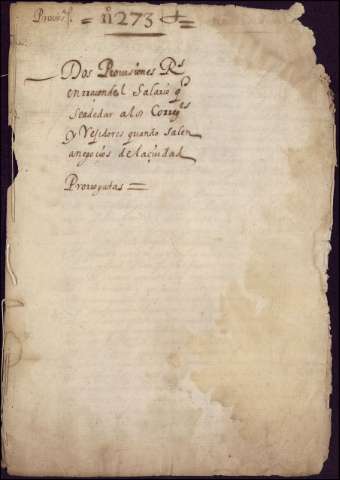 = 11273 =
Dos Provisiones Rs
en rraçon del Salario q
Seadedar alos Corregres
y Regidores quando salen
anegoçios delaçiudad
Prorrogadas =